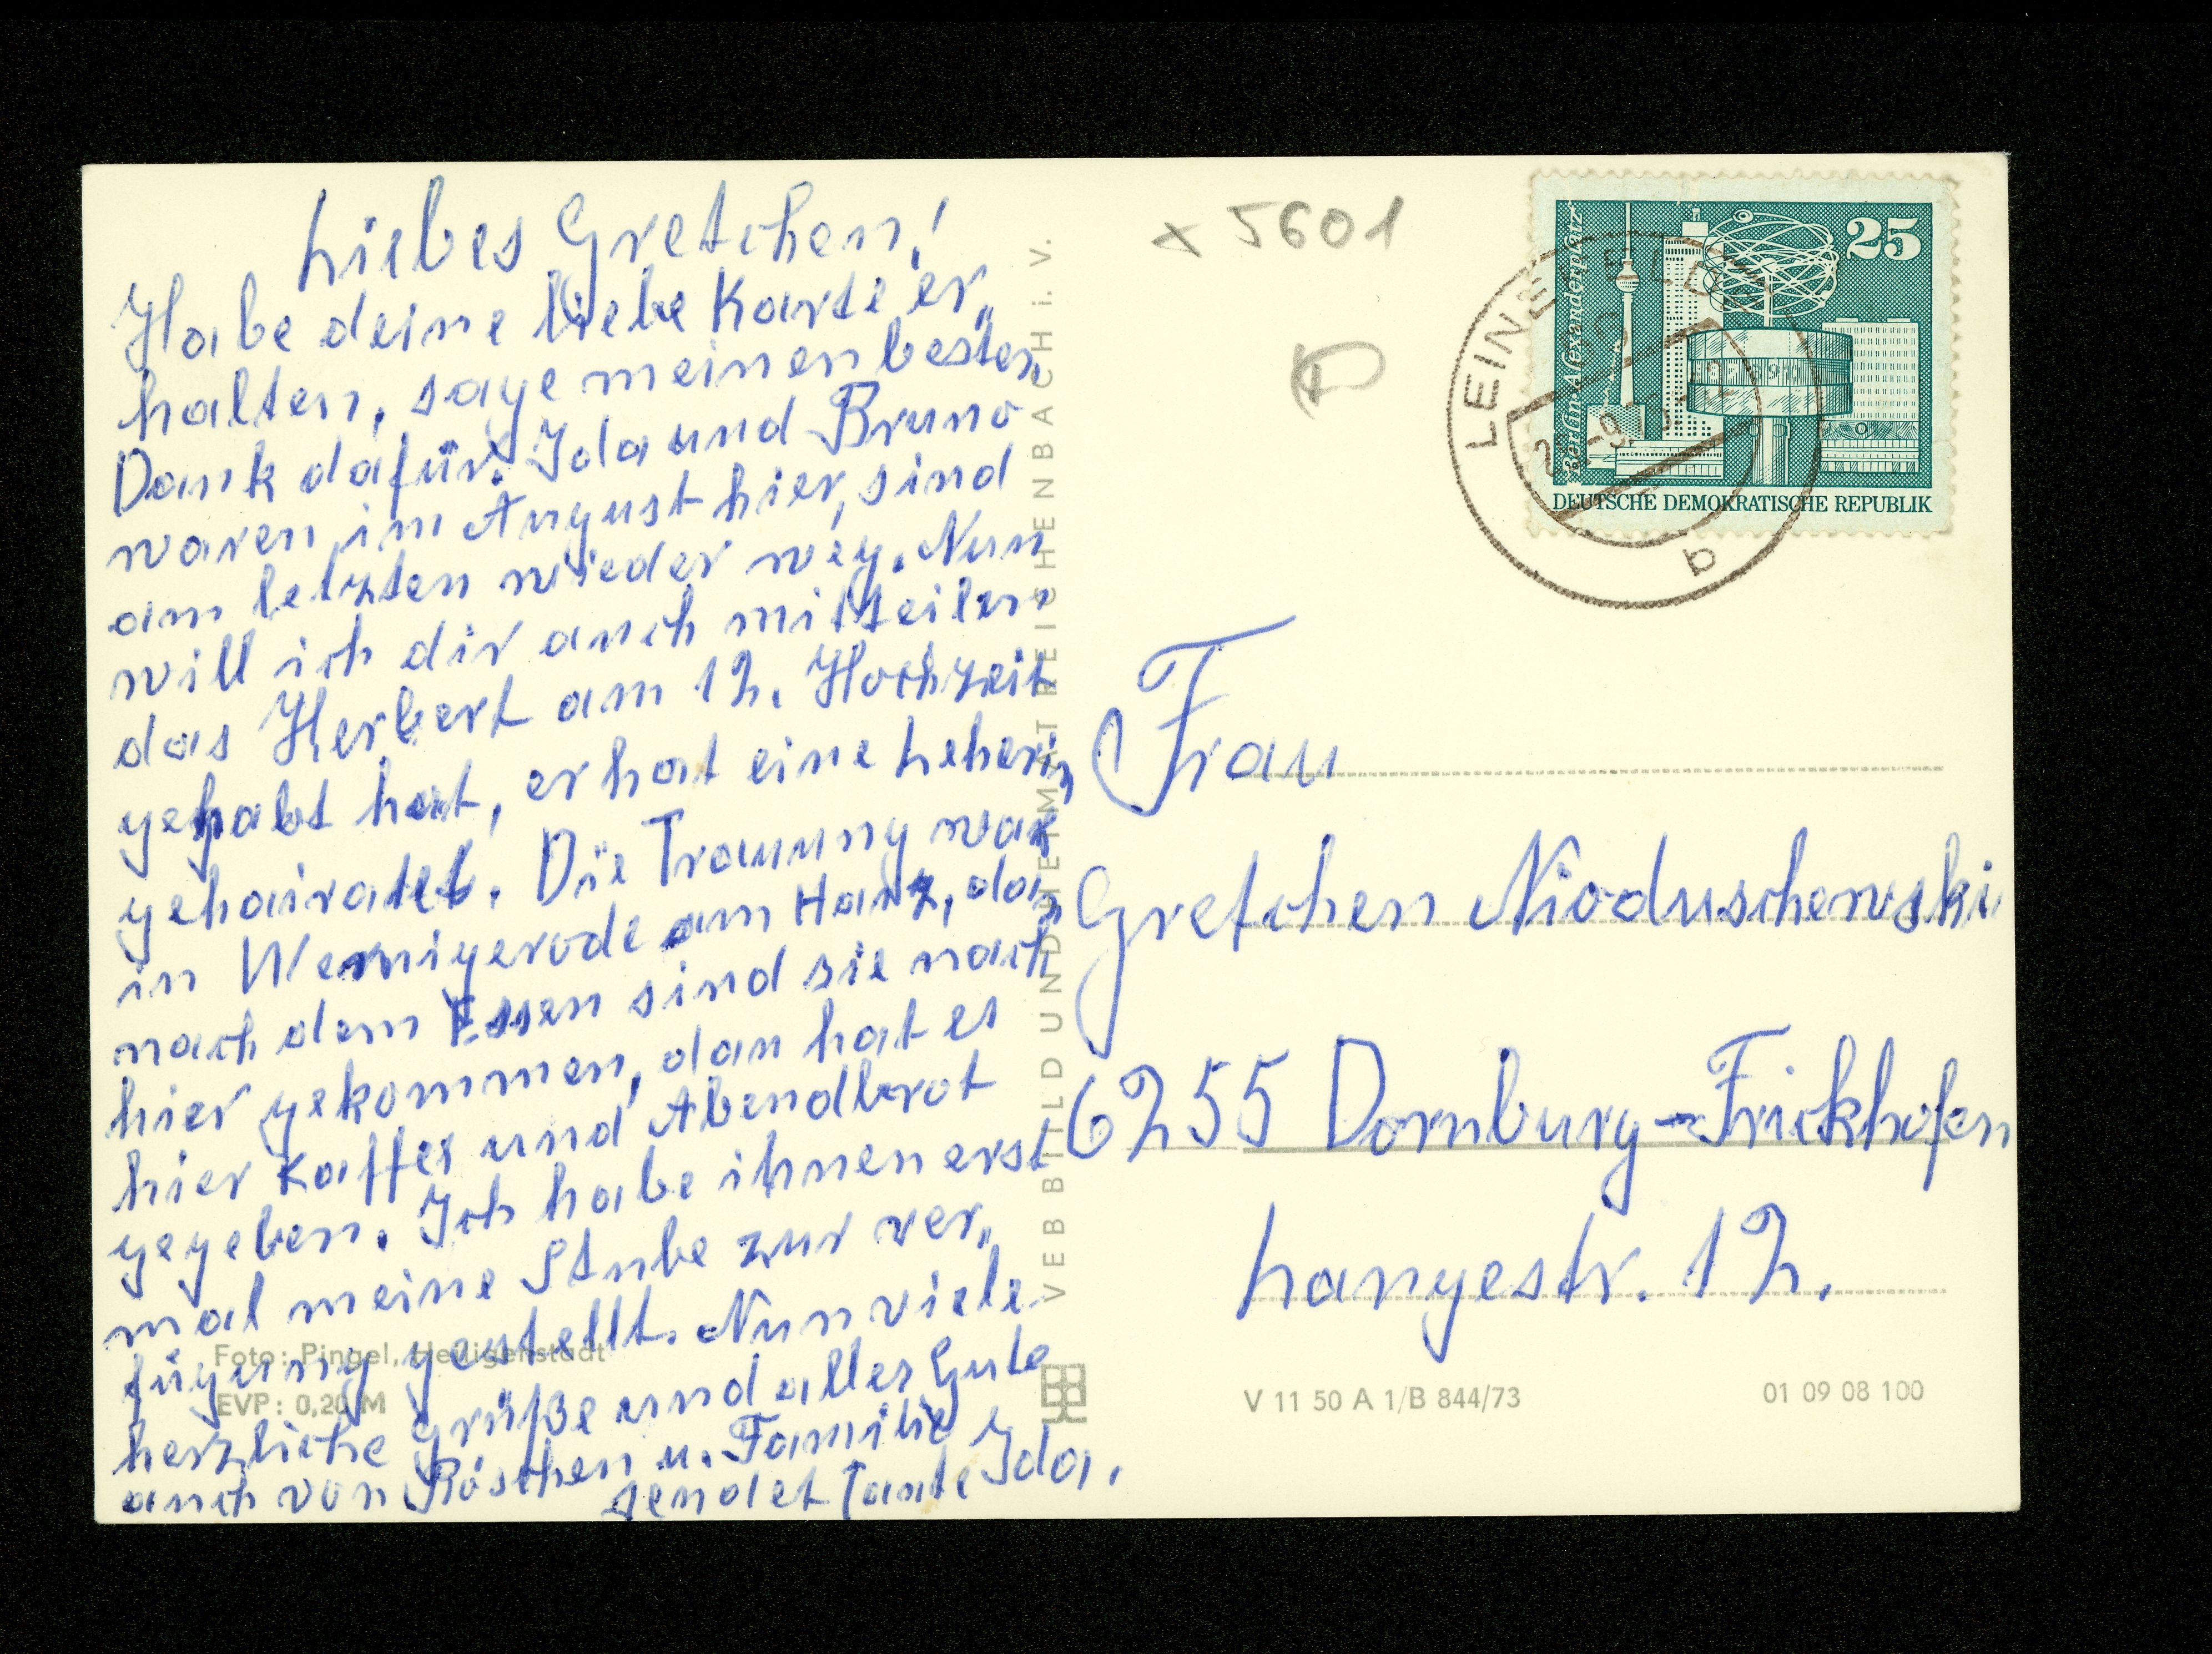 Liebes Gretchen!
Habe deine liebe Karte er„
halten, sage meinen besten
Dank dafür. Ida und Bruno
waren im August hier, sind
am letzten wieder weg. Nun
will ich dir auch mitteilen
das Herbert am 12. Hochzeit
gehabt hat, er hat eine Leherin
gehairatet. Die Trauung war
in Wernigerode am Harz, da„
nach dem Essen sind sie nach
hier gekommen, dan hat es
hier Kaffee und Abendbrot
gegeben. Ich habe ihnen erst
mal meine Stube zur ver„
fügung gestellt. Nun viele
herzliche Grüße und alles Gute
auch von Röschen u. Familie
sendet Tante Ida.
Foto: Pingel, Heiligenstadt
EVP: 0,20 M
VEB BILD UND HEIMAT REICHENBACH i. V.
x 5601
25
Berlin-Alexanderplatz
DEUTSCHE DEMOKRATISCHE REPUBLIK
LEINEFELDE
b
Frau
Gretchen Nioduschewski
6255 Dornburg-Frickhofen
Langestr. 12.
V 11 50 A 1/B 844/73
01 09 08 100